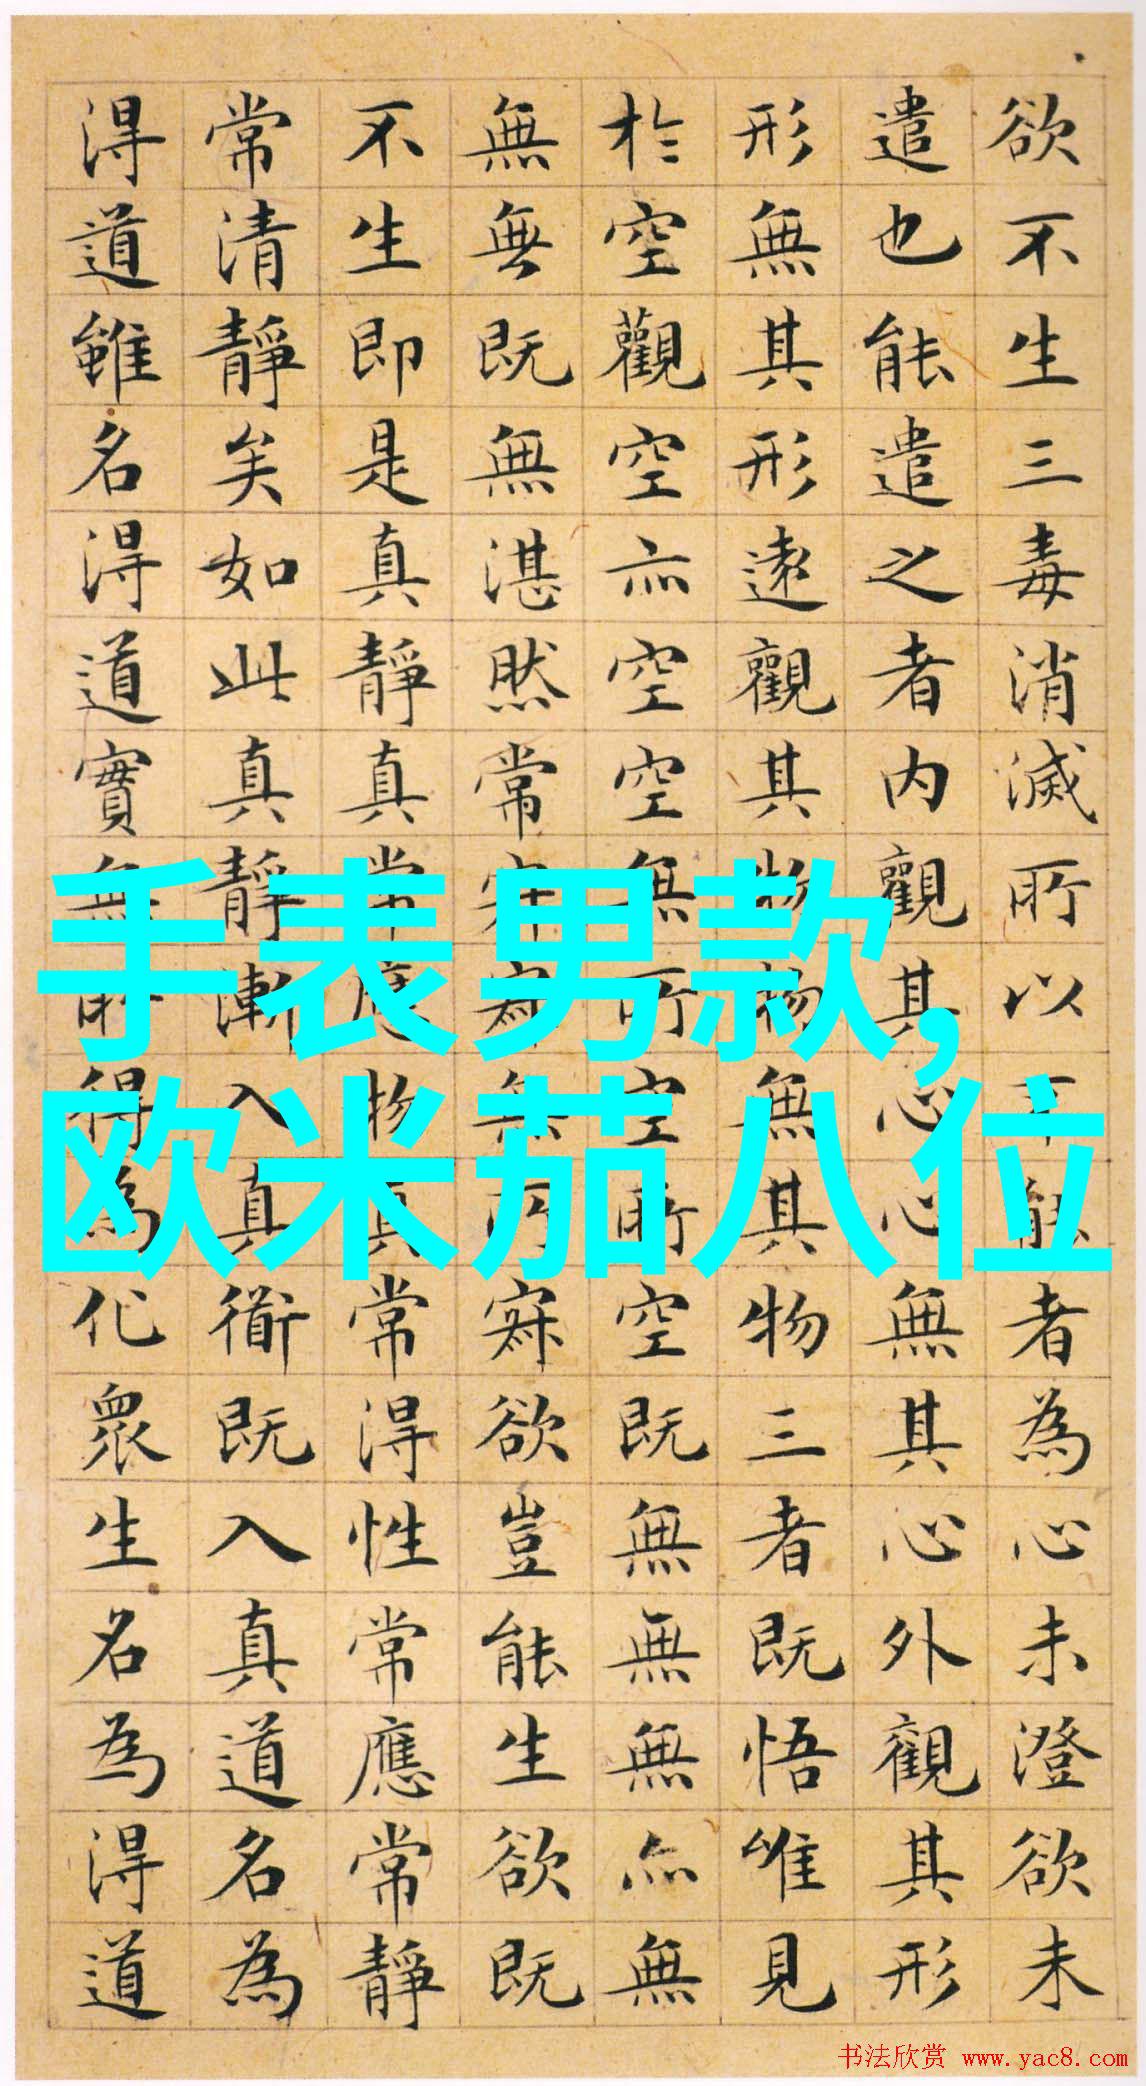 欲不生三毒消滅所以不能者為心未澄欲未
遣也能遣之者內觀其心心無其心外觀其形
形無其形遠觀其物物無其物三者既悟唯見
於空觀空亦空空無所空所空既無無無亦無
無無既無湛然常寂寂無所寂欲豈能生欲既
不生即是真靜真常應物真常得性常應常靜
常清靜矣如此真靜漸入真衜既入真道名為
得道雖名得道實無所得為化眾生名為得道
手表男款,
欧米茄八位
书法欣赏 www.yac8.com